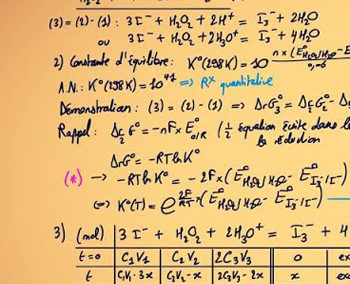 (3) = (2) - (1) : 3 I⁻ + H₂O₂ + 2H⁺ = I₃⁻ + 2H₂O
ou 3 I⁻ + H₂O₂ + 2H₃O⁺ = I₃⁻ + 4H₂O
2) Constante d'équilibre : K°(298K) = 10^ n × (E°H₂O₂/H₂O - E
0,06
A.N. : K°(298K) = 10⁴¹ => Rˣ quantitative
Démonstration : (3) = (2) - (1) => ΔrG°₃ = ΔrG°₂ - Δ
Rappel : ΔrG° = -nF × E°O/R (½ équation écrite dans le
la réduction
ΔrG° = -RT ln K°
(*) → -RT ln K° = -2F × (E°H₂O₂/H₂O - E°I₃⁻/I⁻)
(=) K°(T) = e^ 2F/RT × (E°H₂O₂/H₂O - E°I₃⁻/I⁻)
3) (mol) 3 I⁻ + H₂O₂ + 2H₃O⁺ = I₃⁻ + 4
t=0 C₁V₁ C₂V₂ 2C₃V₃ 0 ex
t C₁V₁-3x C₂V₂-x 2C₃V₃-2x x ex